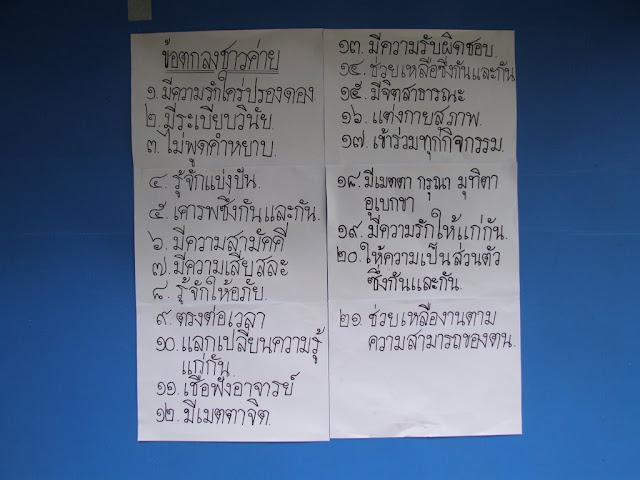 ข้อตกลงชาวค่าย
๑. มีความรักใคร่ปรองดอง
๒. มีระเบียบวินัย.
๓. ไม่พูดคำหยาบ.
๔. รู้จักแบ่งปัน.
๕. เคารพซึ่งกันและกัน.
๖. มีความสามัคคี
๗. มีความเสียสละ
๘. รู้จักให้อภัย.
๙. ตรงต่อเวลา
๑๐. แลกเปลี่ยนความรู้
แก่กัน.
๑๑. เชื่อฟังอาจารย์
๑๒. มีเมตตาจิต.
๑๓. มีความรับผิดชอบ.
๑๔. ช่วยเหลือซึ่งกันและกัน
๑๕. มีจิตสาธารณะ
๑๖. แต่งกายสุภาพ.
๑๗. เข้าร่วมทุกกิจกรรม.
๑๘. มีเมตตา กรุณา มุทิตา
อุเบกขา
๑๙. มีความรักให้แก่กัน.
๒๐. ให้ความเป็นส่วนตัว
ซึ่งกันและกัน.
๒๑. ช่วยเหลืองานตาม
ความสามารถของตน.